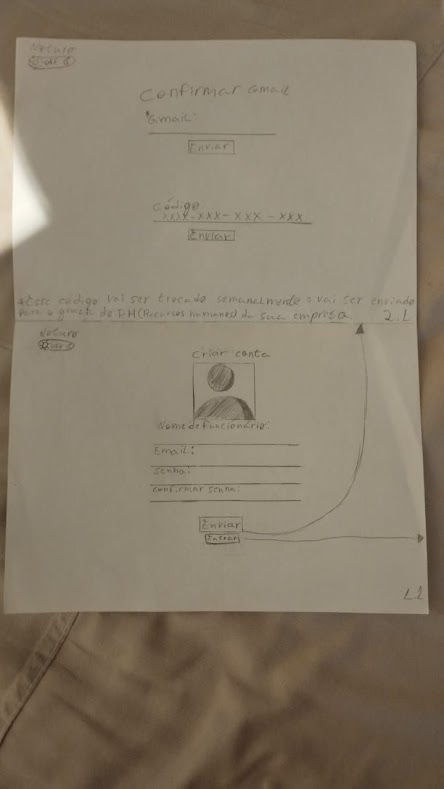 Confirmar Gmail
*Gmail:
Enviar
Código
XXX-XXX-XXX-XXX
Enviar
*Esse código vai ser trocado semanalmente e vai ser enviado
para o gmail do RH(Recursos humanos) da sua empresa.
2.1
Criar conta
Nome de funcionário:
Email:
Senha:
Confirmar senha:
Enviar
Entrar